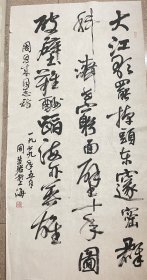 大江歌罷掉頭東邃密群
科濟世窮面壁十年圖
破壁難酬蹈海亦英雄
周恩来同志詩
一九七九年五月
周 上海